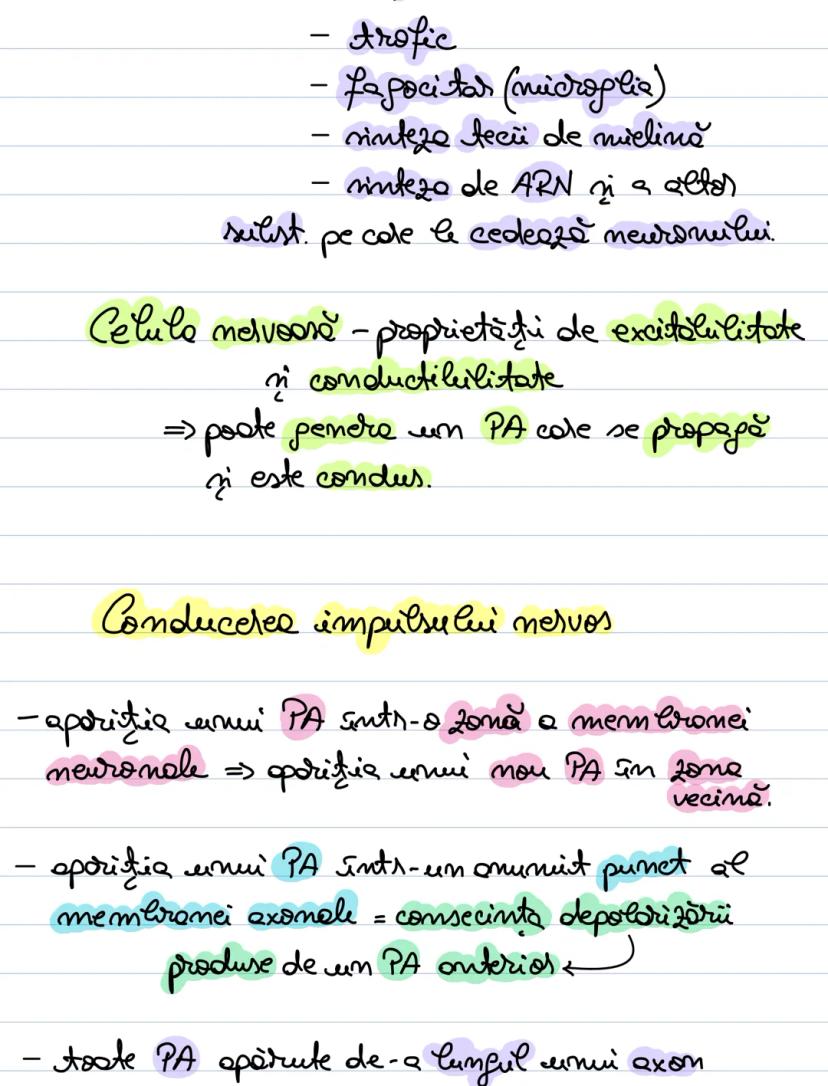 - trofic
- fagocitar (microglia)
- sinteza tecii de mielină
- sinteza de ARN și a altor
subst. pe care le cedează neuronului.
Celula nervoasă - proprietăți de excitabilitate
și conductibilitate
⇒ poate genera un PA care se propagă
și este condus.
Conducerea impulsului nervos
- apariția unui PA într-o zonă a membranei
neuronale ⇒ apariția unui nou PA în zona
vecină.
- apariția unui PA într-un anumit punct al
membranei axonale = consecința depolarizării
produse de un PA anterior
- toate PA apărute de-a lungul unui axon